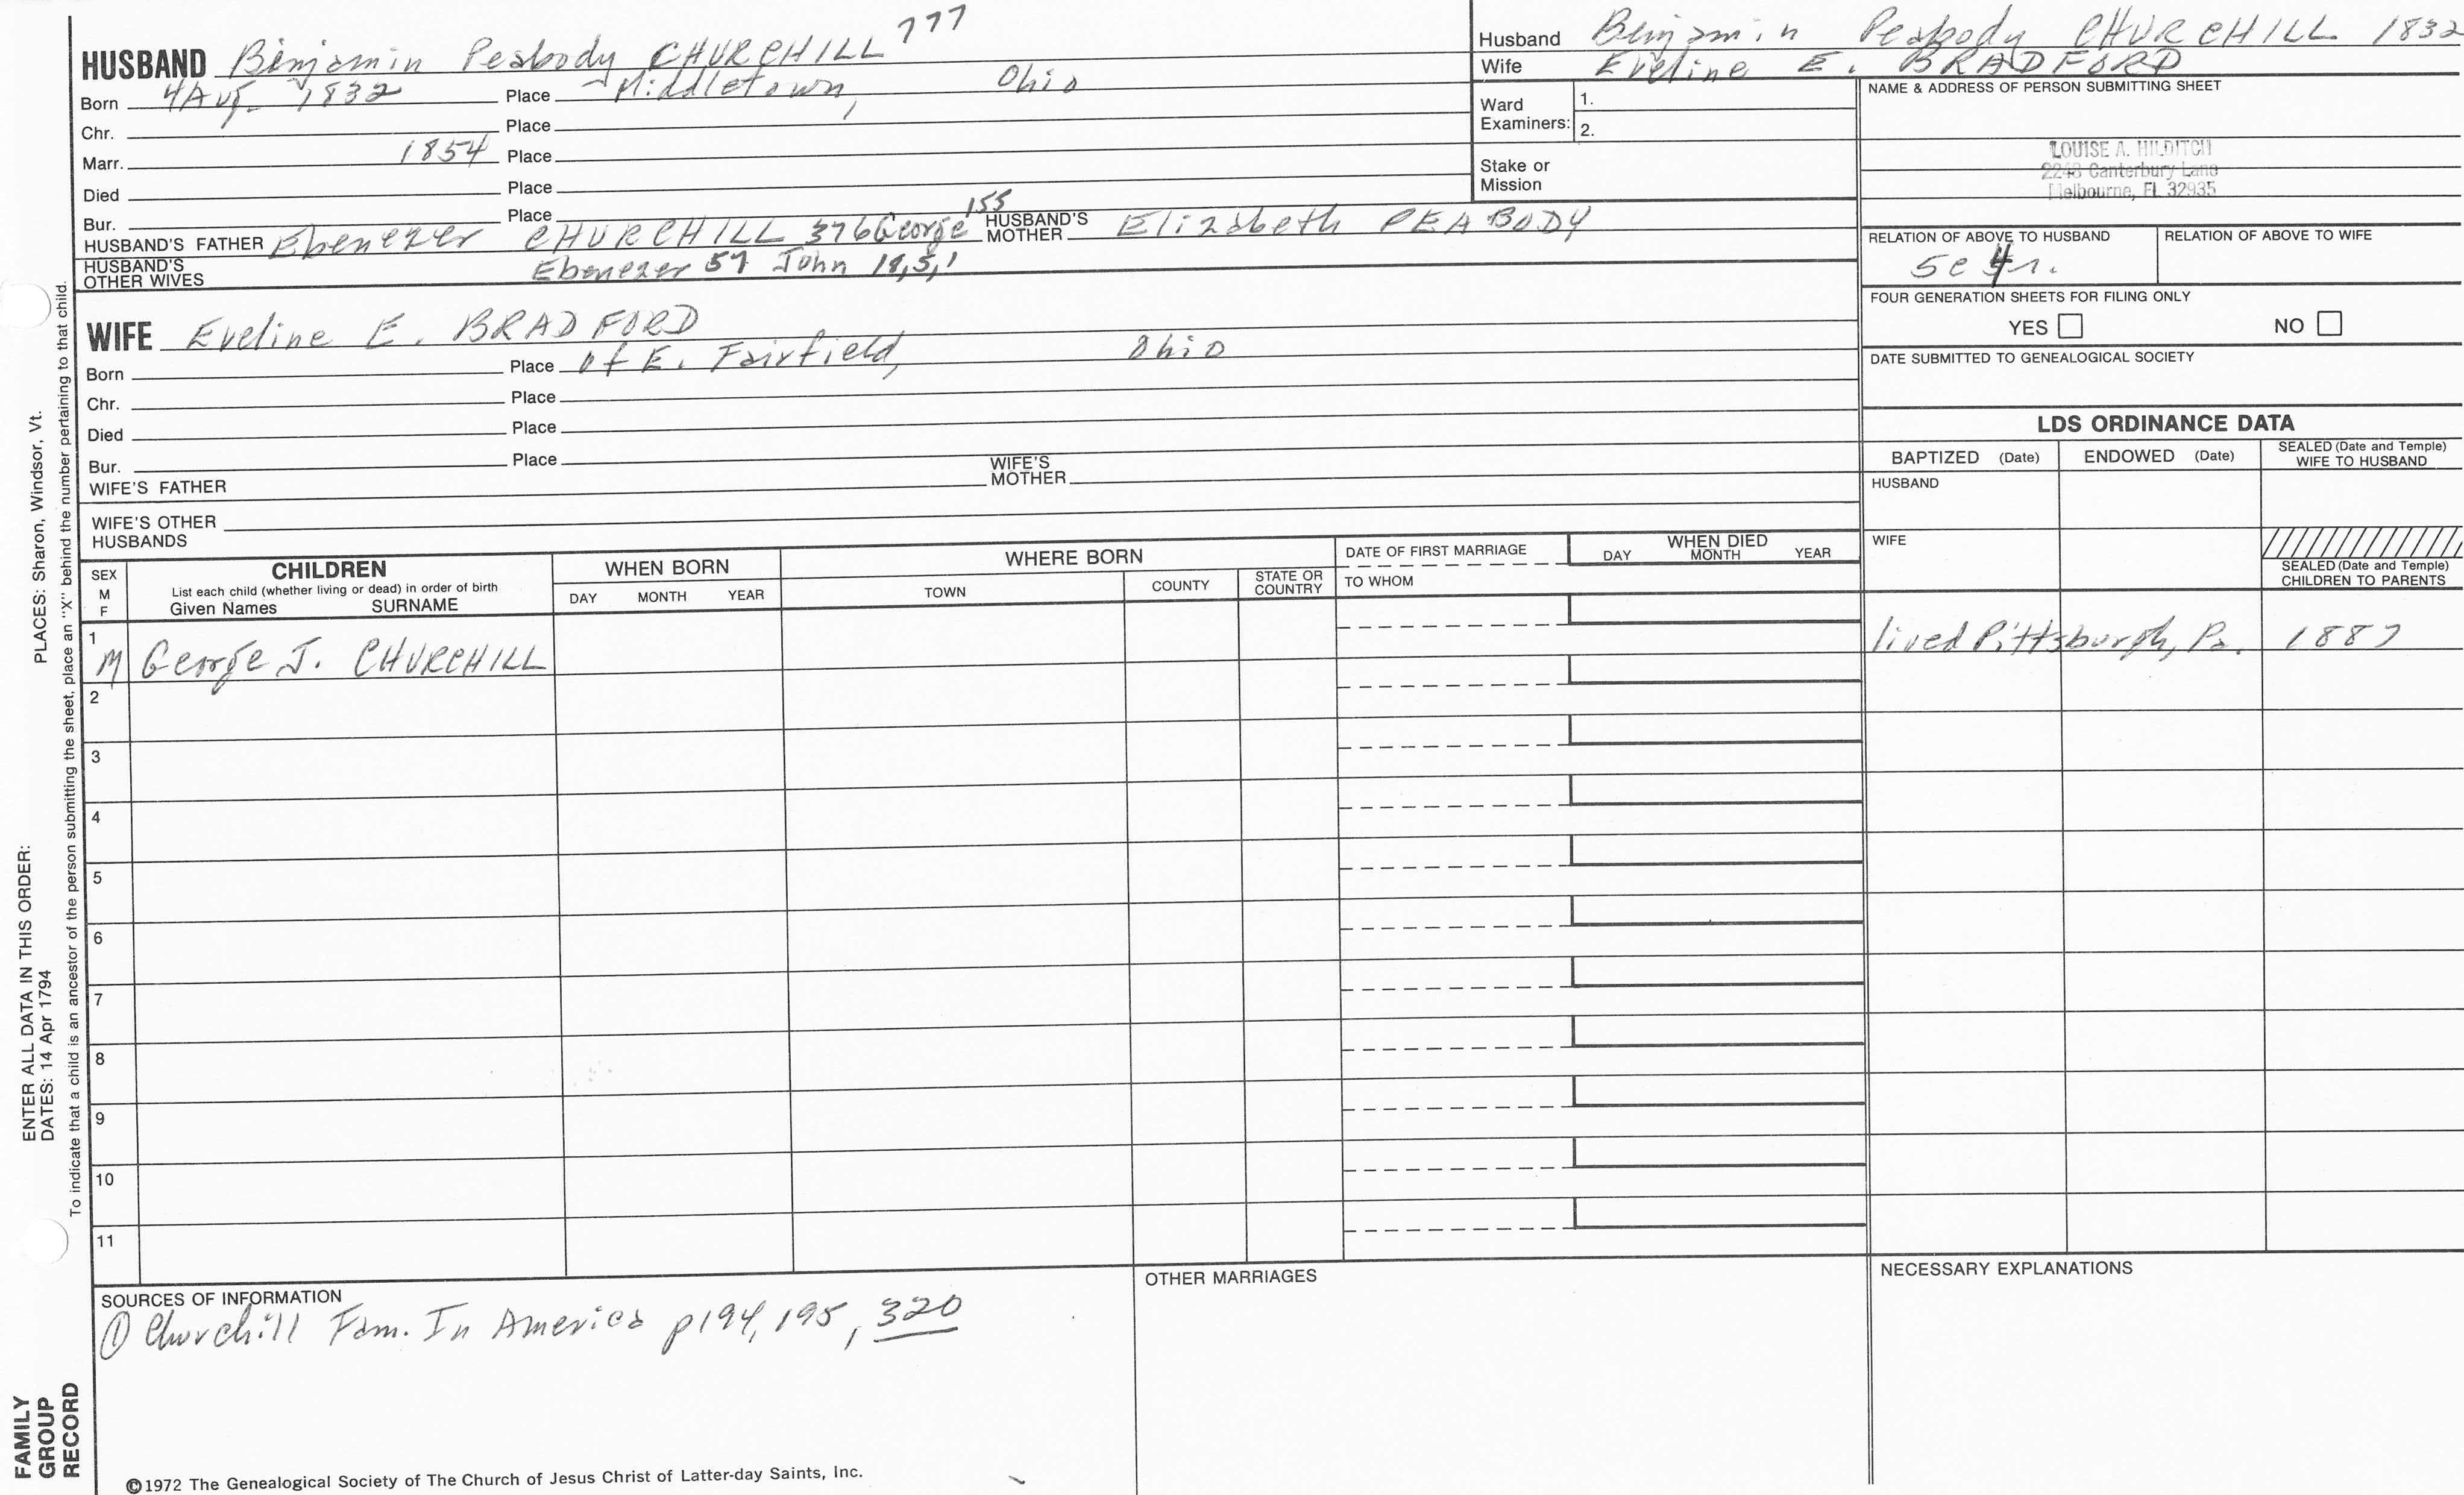 HUSBAND Benjamin Peabody CHURCHILL 777
Born 4 Aug 1832 Place Middletown, Ohio
Chr. Place
Marr. 1854 Place
Died Place
Bur. Place
HUSBAND'S FATHER Ebenezer CHURCHILL 376 George 155 HUSBAND'S MOTHER Elizabeth PEABODY
HUSBAND'S OTHER WIVES Ebenezer 57 John 18,5,1
WIFE Eveline E. BRADFORD
Born Place of E. Fairfield, Ohio
Chr. Place
Died Place
Bur. Place
WIFE'S FATHER WIFE'S MOTHER
WIFE'S OTHER HUSBANDS
Husband Benjamin Peabody CHURCHILL 1832
Wife Eveline E. BRADFORD
Ward Examiners: 1.
2.
Stake or Mission
NAME & ADDRESS OF PERSON SUBMITTING SHEET
LOUISE A. HILDITCH
2248 Canterbury Lane
Melbourne, FL 32935
RELATION OF ABOVE TO HUSBAND RELATION OF ABOVE TO WIFE
5c 4r.
FOUR GENERATION SHEETS FOR FILING ONLY
YES NO
DATE SUBMITTED TO GENEALOGICAL SOCIETY
LDS ORDINANCE DATA
BAPTIZED (Date) ENDOWED (Date) SEALED (Date and Temple) WIFE TO HUSBAND
HUSBAND
WIFE
SEALED (Date and Temple) CHILDREN TO PARENTS
SEX M F
CHILDREN
List each child (whether living or dead) in order of birth
Given Names SURNAME
WHEN BORN
DAY MONTH YEAR
WHERE BORN
TOWN COUNTY STATE OR COUNTRY
DATE OF FIRST MARRIAGE
TO WHOM
WHEN DIED
DAY MONTH YEAR
1 M George J. CHURCHILL lived Pittsburgh, Pa. 1887
2
3
4
5
6
7
8
9
10
11
SOURCES OF INFORMATION
① Churchill Fam. In America p194, 195, 320
OTHER MARRIAGES
NECESSARY EXPLANATIONS
©1972 The Genealogical Society of The Church of Jesus Christ of Latter-day Saints, Inc.
FAMILY
GROUP
RECORD
ENTER ALL DATA IN THIS ORDER:
DATES: 14 Apr 1794
PLACES: Sharon, Windsor, Vt.
To indicate that a child is an ancestor of the person submitting the sheet, place an "X" behind the number pertaining to that child.